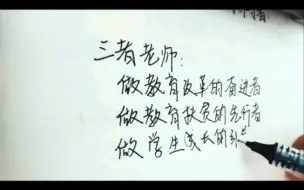 三者老师:
做教育改革的奋进者
做教育扶贫的先行者
做学生成长的引